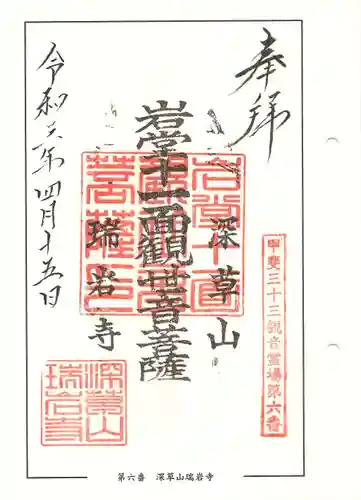 奉拝
甲斐三十三観音霊場第六番
深草山
岩堂十一面観世音菩薩
瑞岩寺
深草山
瑞岩寺
第六番　深草山瑞岩寺